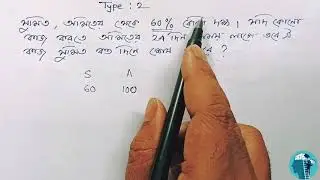 Type : 2
সুমিত, অমিতের থেকে 60% দক্ষ, যদি কোনো
কাজ করতে অমিতের 24 দিন লাগে তবে ঐ
কাজ সুমিত কত দিনে শেষ ?
S A
60 100